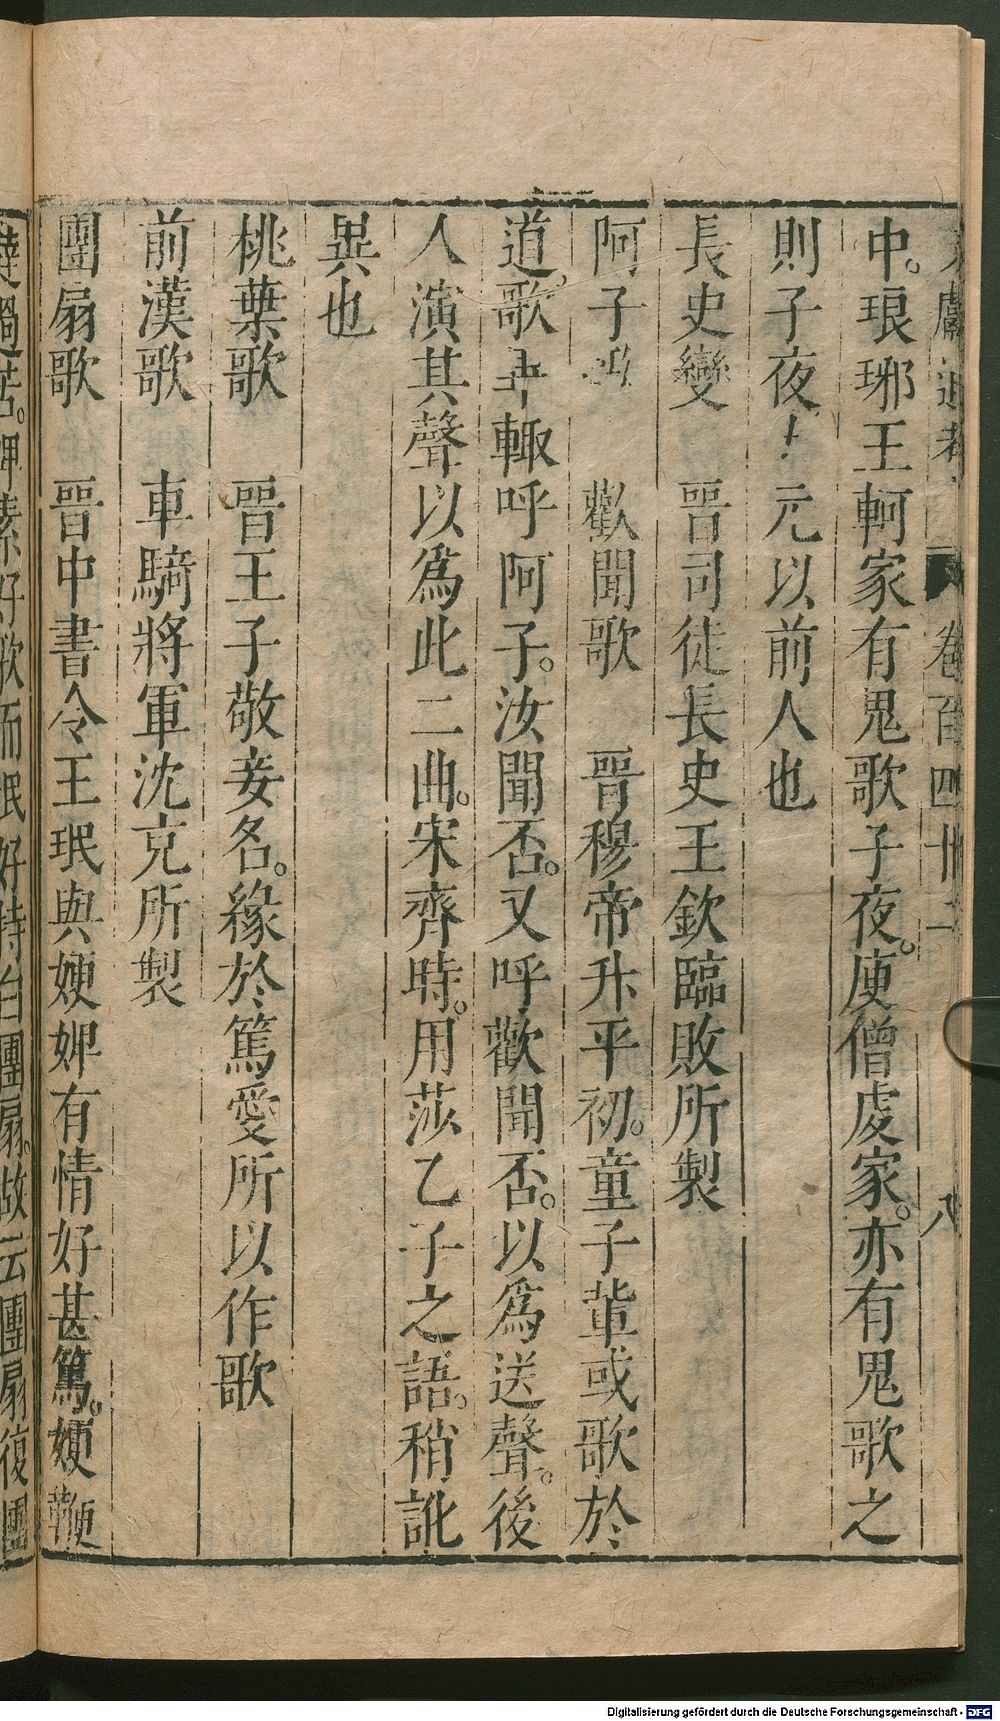 獻通考 卷百四十二 八
中。琅琊王軻家有鬼歌子夜。庾僧虔家。亦有鬼歌之
則子夜 元以前人也
長史變 晉司徒長史王欽臨敗所製
阿子 歡聞歌 晉穆帝升平初。童子輩或歌於
道。歌 輙呼阿子。汝聞否。又呼歡聞否。以為送聲。後
人演其聲以為此二曲。宋齊時。用莎乙子之語。稍訛
異也
桃葉歌 晉王子敬妾名。緣於篤愛所以作歌
前漢歌 車騎將軍沈充所製
團扇歌 晉中書令王珉與嫂婢有情好甚篤。嫂鞭
撻過苦。婢素好歌而珉好持白團扇。故云團扇復團
Digitalisierung gefördert durch die Deutsche Forschungsgemeinschaft - DFG